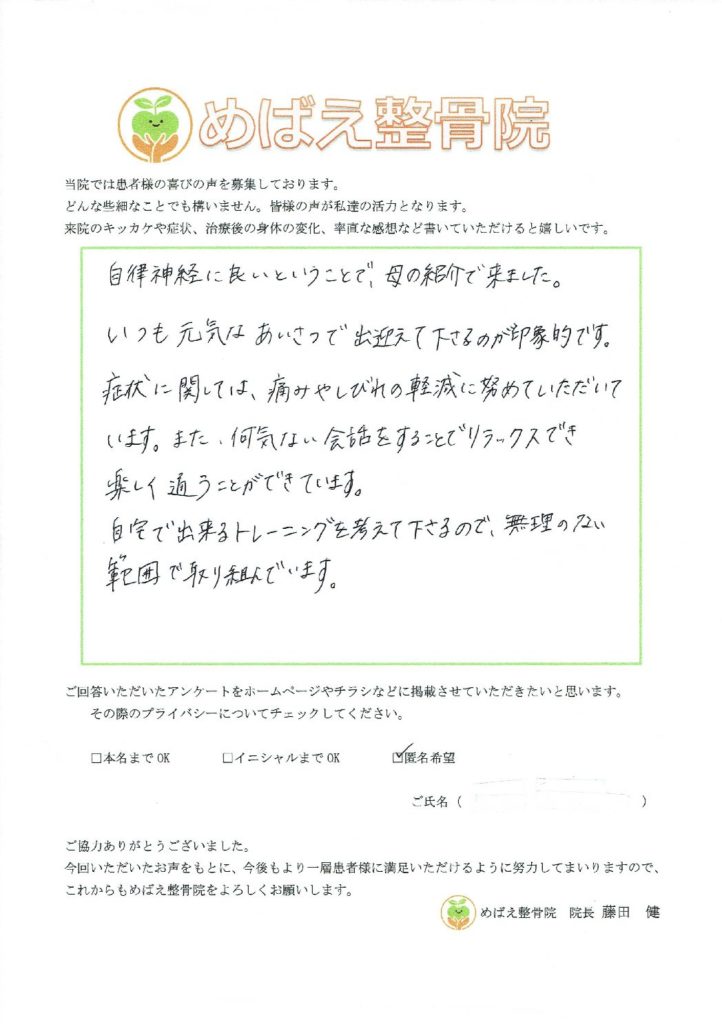 めばえ整骨院
当院では患者様の喜びの声を募集しております。
どんな些細なことでも構いません。皆様の声が私達の活力となります。
来院のキッカケや症状、治療後の身体の変化、率直な感想など書いていただけると嬉しいです。
自律神経に良いということで、母の紹介で来ました。
いつも元気なあいさつで出迎えて下さるのが印象的です。
症状に関しては、痛みやしびれの軽減に努めていただいて
います。また、何気ない会話をすることでリラックスでき
楽しく通うことができています。
自宅で出来るトレーニングを考えて下さるので、無理のない
範囲で取り組んでいます。
ご回答いただいたアンケートをホームページやチラシなどに掲載させていただきたいと思います。
その際のプライバシーについてチェックしてください。
□本名までOK □イニシャルまでOK ☑匿名希望
ご氏名（ ）
ご協力ありがとうございました。
今回いただいたお声をもとに、今後もより一層患者様に満足いただけるように努力してまいりますので、
これからもめばえ整骨院をよろしくお願いします。
めばえ整骨院 院長 藤田 健